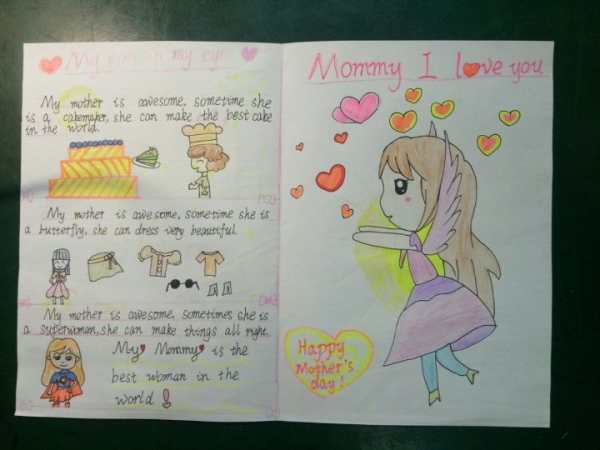 My mom in my eyes
My mother is awesome, sometime she
is a cakemaker, she can make the best cake
in the world.
My mother is awesome, sometime she is
a butterfly, she can dress very beautiful.
My mother is awesome, sometimes she is
a superwoman, she can make things all right.
My Mommy is the
best woman in the
world!
Mommy I love you
Happy
Mother's
day!